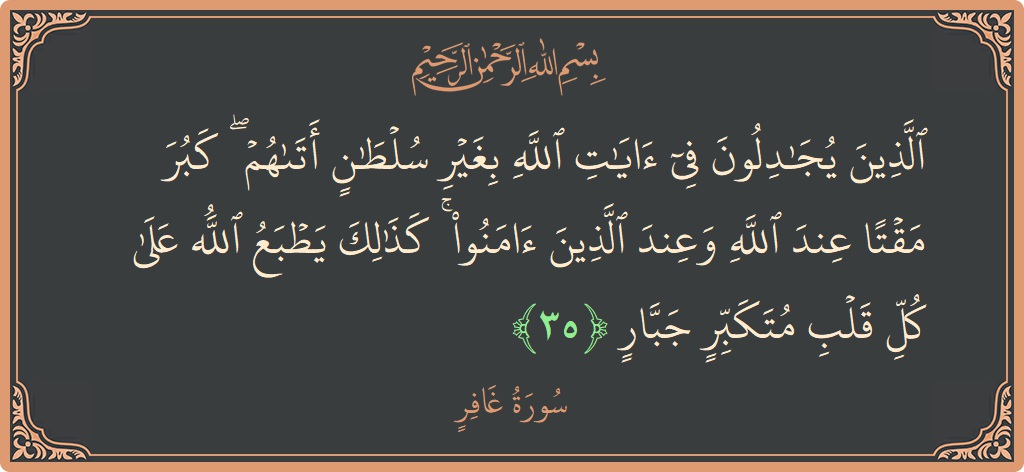 بِسْمِ اللَّهِ الرَّحْمَٰنِ الرَّحِيمِ
ٱلَّذِينَ يُجَٰدِلُونَ فِىٓ ءَايَٰتِ ٱللَّهِ بِغَيْرِ سُلْطَٰنٍ أَتَىٰهُمْ ۖ كَبُرَ
مَقْتًا عِندَ ٱللَّهِ وَعِندَ ٱلَّذِينَ ءَامَنُوا۟ ۚ كَذَٰلِكَ يَطْبَعُ ٱللَّهُ عَلَىٰ
كُلِّ قَلْبِ مُتَكَبِّرٍ جَبَّارٍ ﴿٣٥﴾
سُورَةُ غَافِرٍ